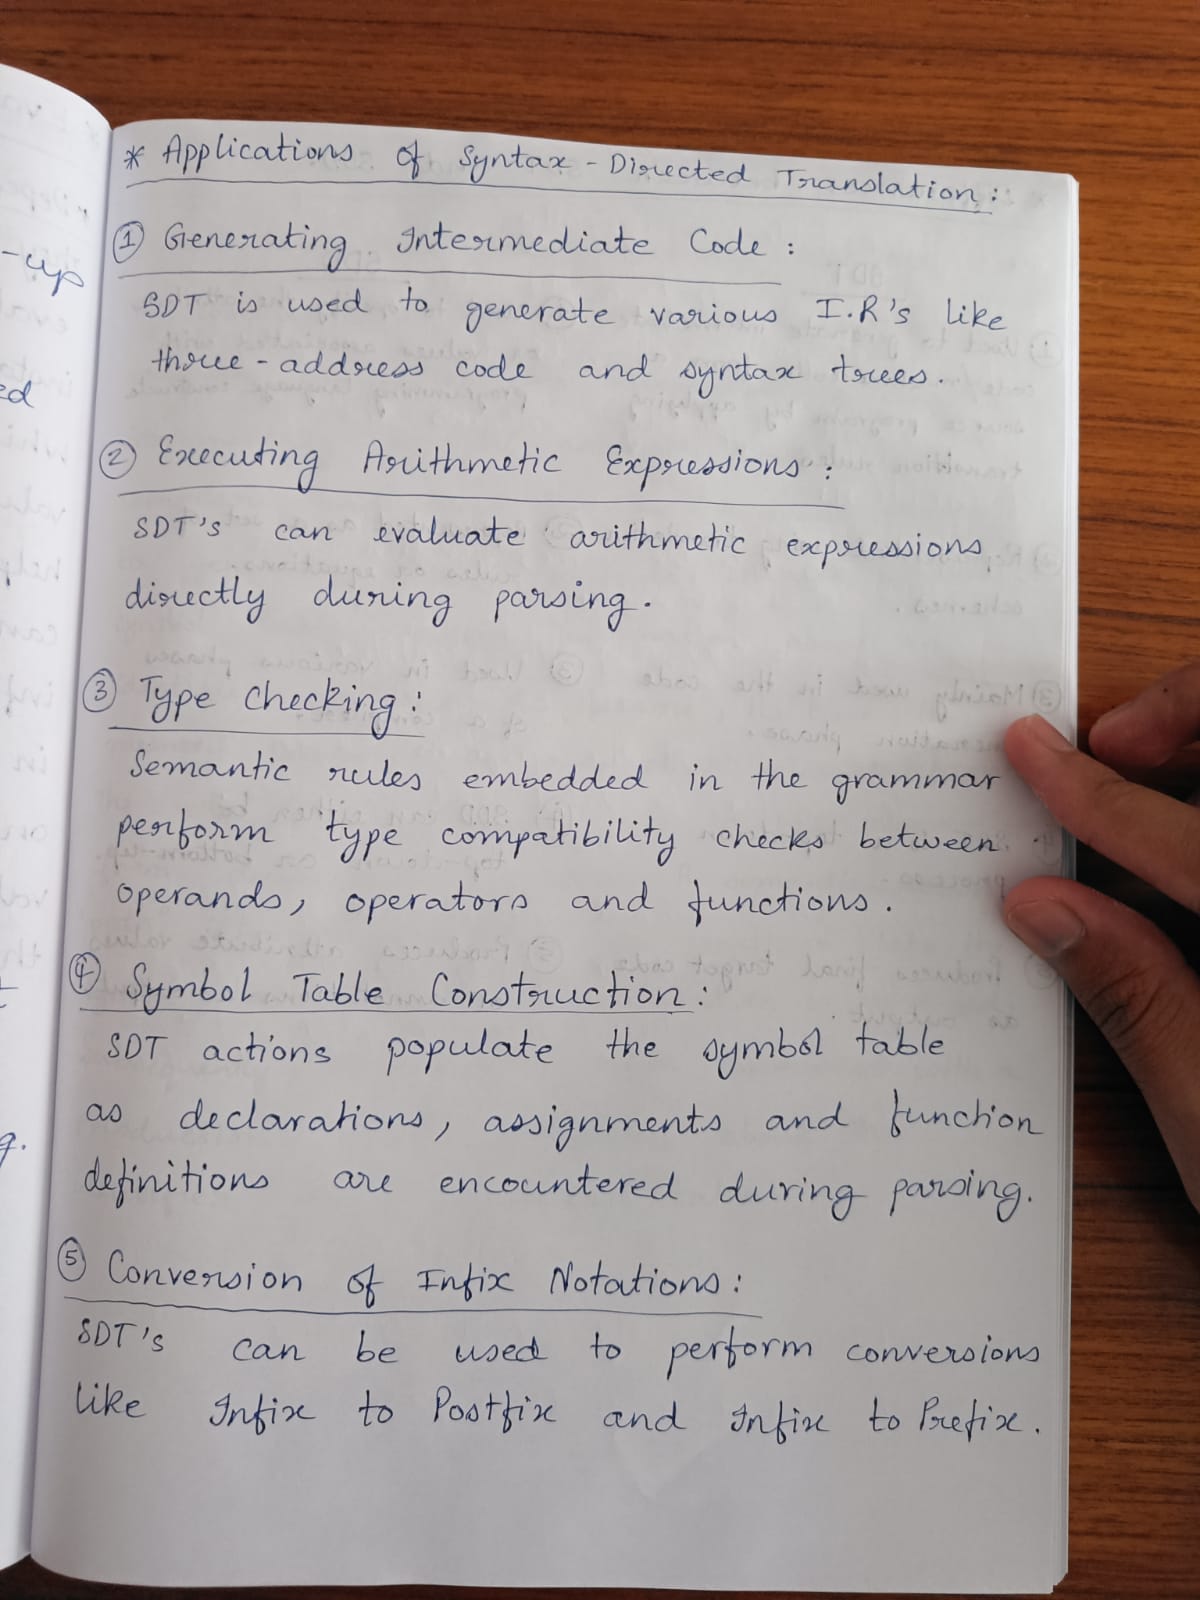 * Applications of Syntax - Directed Translation :
① Generating Intermediate Code :
SDT is used to generate various I.R's like
three - address code and syntax trees.
② Executing Arithmetic Expressions :
SDT's can evaluate arithmetic expressions
directly during parsing.
③ Type Checking :
Semantic rules embedded in the grammar
perform type compatibility checks between
operands, operators and functions.
④ Symbol Table Construction :
SDT actions populate the symbol table
as declarations, assignments and function
definitions are encountered during parsing.
⑤ Conversion of Infix Notations :
SDT's can be used to perform conversions
like Infix to Postfix and Infix to Prefix.
-up
ed
g.